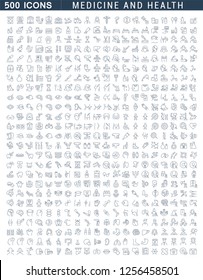 500 ICONS MEDICINE AND HEALTH
shutterstock.com · 1256458501